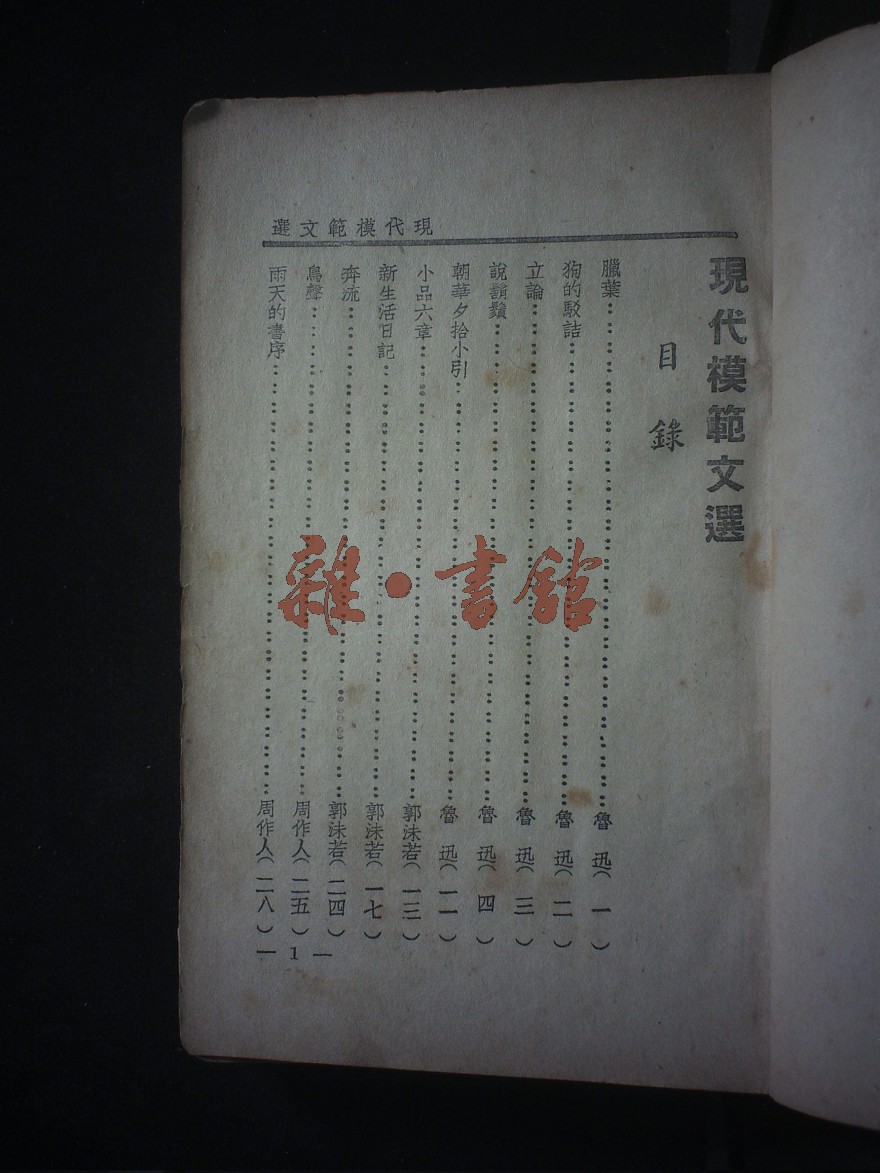 選文範模代現
現代模範文選
目錄
臘葉……魯迅(一)
狗的駁詰……魯迅(二)
立論……魯迅(三)
說鬍鬚……魯迅(四)
朝華夕拾小引……魯迅(一一)
小品六章……郭沫若(一三)
新生活日記……郭沫若(一七)
奔流……郭沫若(二四)
鳥聲……周作人(二五)
雨天的書序……周作人(二八)
— 1 —
雜·書館